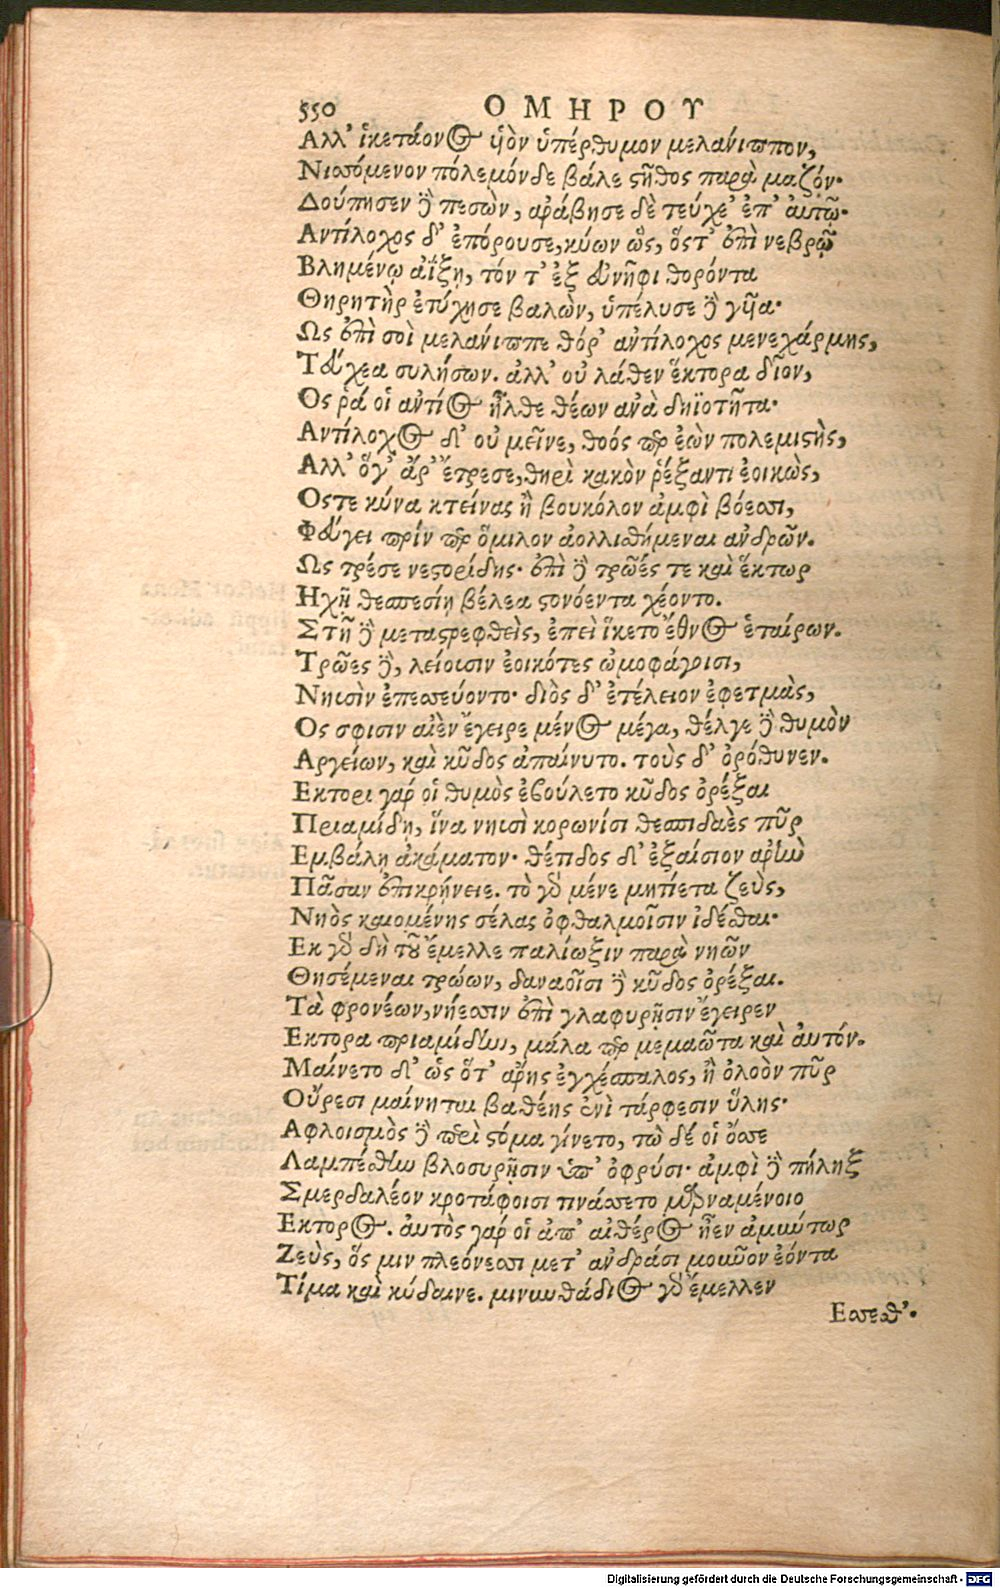 550 ΟΜΗΡΟΥ
Αλλ' ἱκετάονος ὑιὸν ὑπέρθυμον μελάνιππον,
Νισσόμενον πόλεμόνδε βάλε στῆθος παρὰ μαζόν·
Δούπησεν δὲ πεσὼν, ἀράβησε δὲ τεύχε' ἐπ' αὐτῷ·
Αντίλοχος δ' ἐπόρουσε, κύων ὣς, ὅστ' ἐπὶ νεβρῷ
Βλημένῳ ἀΐξῃ, τόν τ' ἐξ εὐνῆφι θορόντα
Θηρητὴρ ἐτύχησε βαλὼν, ὑπέλυσε δὲ γυῖα·
Ως ἐπὶ σοὶ μελάνιππε θόρ' ἀντίλοχος μενεχάρμης,
Τεύχεα συλήσων. ἀλλ' οὐ λάθεν ἕκτορα δῖον,
Ος ῥά οἱ ἀντίος ἦλθε θέων ἀνὰ δηϊοτῆτα·
Αντίλοχος δ' οὐ μεῖνε, θοός περ ἐὼν πολεμιστὴς,
Αλλ' ὅγ' ἄρ' ἔτρεσε, θηρὶ κακὸν ῥέξαντι ἐοικὼς,
Οστε κύνα κτείνας ἢ βουκόλον ἀμφὶ βόεσσι,
Φεύγει πρίν περ ὅμιλον ἀολλισθήμεναι ἀνδρῶν.
Ως τρέσε νεστορίδης· ἐπὶ δὲ τρῶές τε καὶ ἕκτωρ
Ηχῇ θεσπεσίῃ βέλεα στονόεντα χέοντο.
Στῆ δὲ μεταστρεφθεὶς, ἐπεὶ ἵκετο ἔθνος ἑταίρων.
Τρῶες δὲ, λείουσιν ἐοικότες ὠμοφάγοισι,
Νηυσὶν ἐπεσσεύοντο· διὸς δ' ἐτέλειον ἐφετμὰς,
Ος σφισιν αἰὲν ἔγειρε μένος μέγα, θέλγε δὲ θυμὸν
Αργείων, καὶ κῦδος ἀπαίνυτο. τοὺς δ' ὀρόθυνεν.
Εκτορι γαρ οἱ θυμὸς ἐβούλετο κῦδος ὀρέξαι
Πριαμίδῃ, ἵνα νηυσὶ κορωνίσι θεσπιδαὲς πῦρ
Εμβάλῃ ἀκάματον· θέτιδος δ' ἐξαίσιον ἀρὴν
Πᾶσαν ἐπικρήνειε. τὸ γὰρ μένε μητίετα ζεὺς,
Νηὸς καιομένης σέλας ὀφθαλμοῖσιν ἰδέσθαι·
Εκ γὰρ δὴ τοῦ ἔμελλε παλίωξιν παρὰ νηῶν
Θησέμεναι τρώων, δαναοῖσι δὲ κῦδος ὀρέξαι.
Τὰ φρονέων, νήεσσιν ἐπὶ γλαφυρῇσιν ἔγειρεν
Εκτορα πριαμίδην, μάλα περ μεμαῶτα καὶ ἀυτόν.
Μαίνετο δ' ὡς ὅτ' ἄρης ἐγχέσπαλος, ἢ ὀλοὸν πῦρ
Οὔρεσι μαίνηται βαθέης ἐνὶ τάρφεσιν ὕλης·
Αφλοισμὸς δὲ περὶ στόμα γίνετο, τὼ δέ οἱ ὄσσε
Λαμπέσθην βλοσυρῇσιν ὑπ' ὀφρύσι· ἀμφὶ δὲ πήληξ
Σμερδαλέον κροτάφοισι τινάσσετο μαρναμένοιο
Εκτορος. ἀυτὸς γάρ οἱ ἀπ' αἰθέρος ἦεν ἀμύντωρ
Ζεὺς, ὅς μιν πλεόνεσσι μετ' ἀνδράσι μοῦνον ἐόντα
Τίμα καὶ κύδαινε. μινυνθάδιος γὰρ ἔμελλεν
Εσσεσθ'·
Digitalisierung gefördert durch die Deutsche Forschungsgemeinschaft - DFG